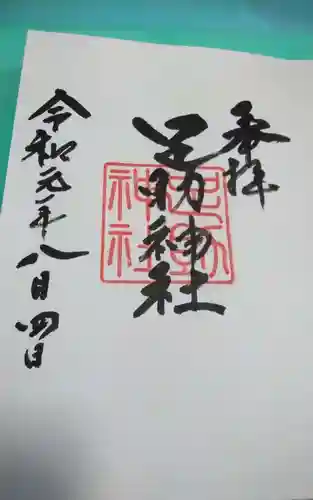 奉拝
足助神社
足助神社
令和元年八月四日